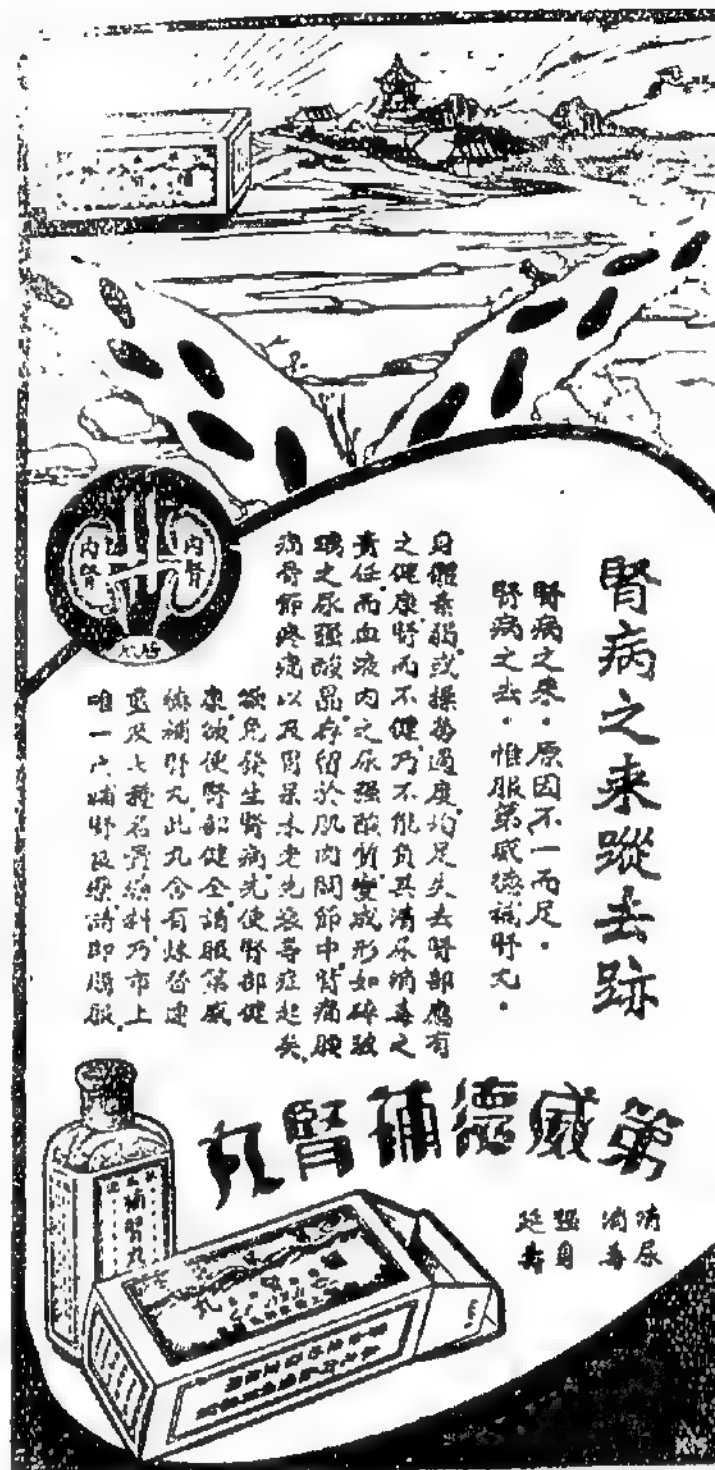 腎病之來蹤去跡
腎病之來．原因不一而足．
腎病之去．惟服第威德補腎丸．
身體柔弱或操勞過度均足失去腎部應有
之健康腎而不健乃不能負其清尿消毒之
責任而血液內之尿强酸質變成形如碎玻
璃之尿强酸晶存留於肌肉關節中背痛腰
痛骨節疼痛以及胃呆未老先衰等症起矣
欲免發生腎病先使腎部健
康欲使腎部健全請服第威
德補腎丸此丸含有
及七種名貴藥料乃市上
唯一之補腎良藥請即購服
第威德補腎丸
清尿
消毒
强身
延壽
內腎
內腎
膀胱
補腎丸